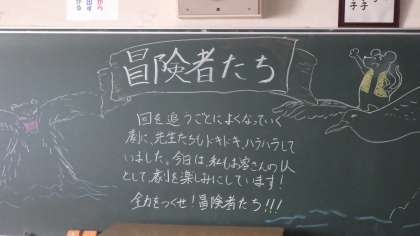 冒険者たち
回を追うごとによくなっていく
劇に、先生たちもドキドキ、ハラハラして
いました。今日は、私もお客さんの1人
として、劇を楽しみにしています!
全力をつくせ!冒険者たち!!!